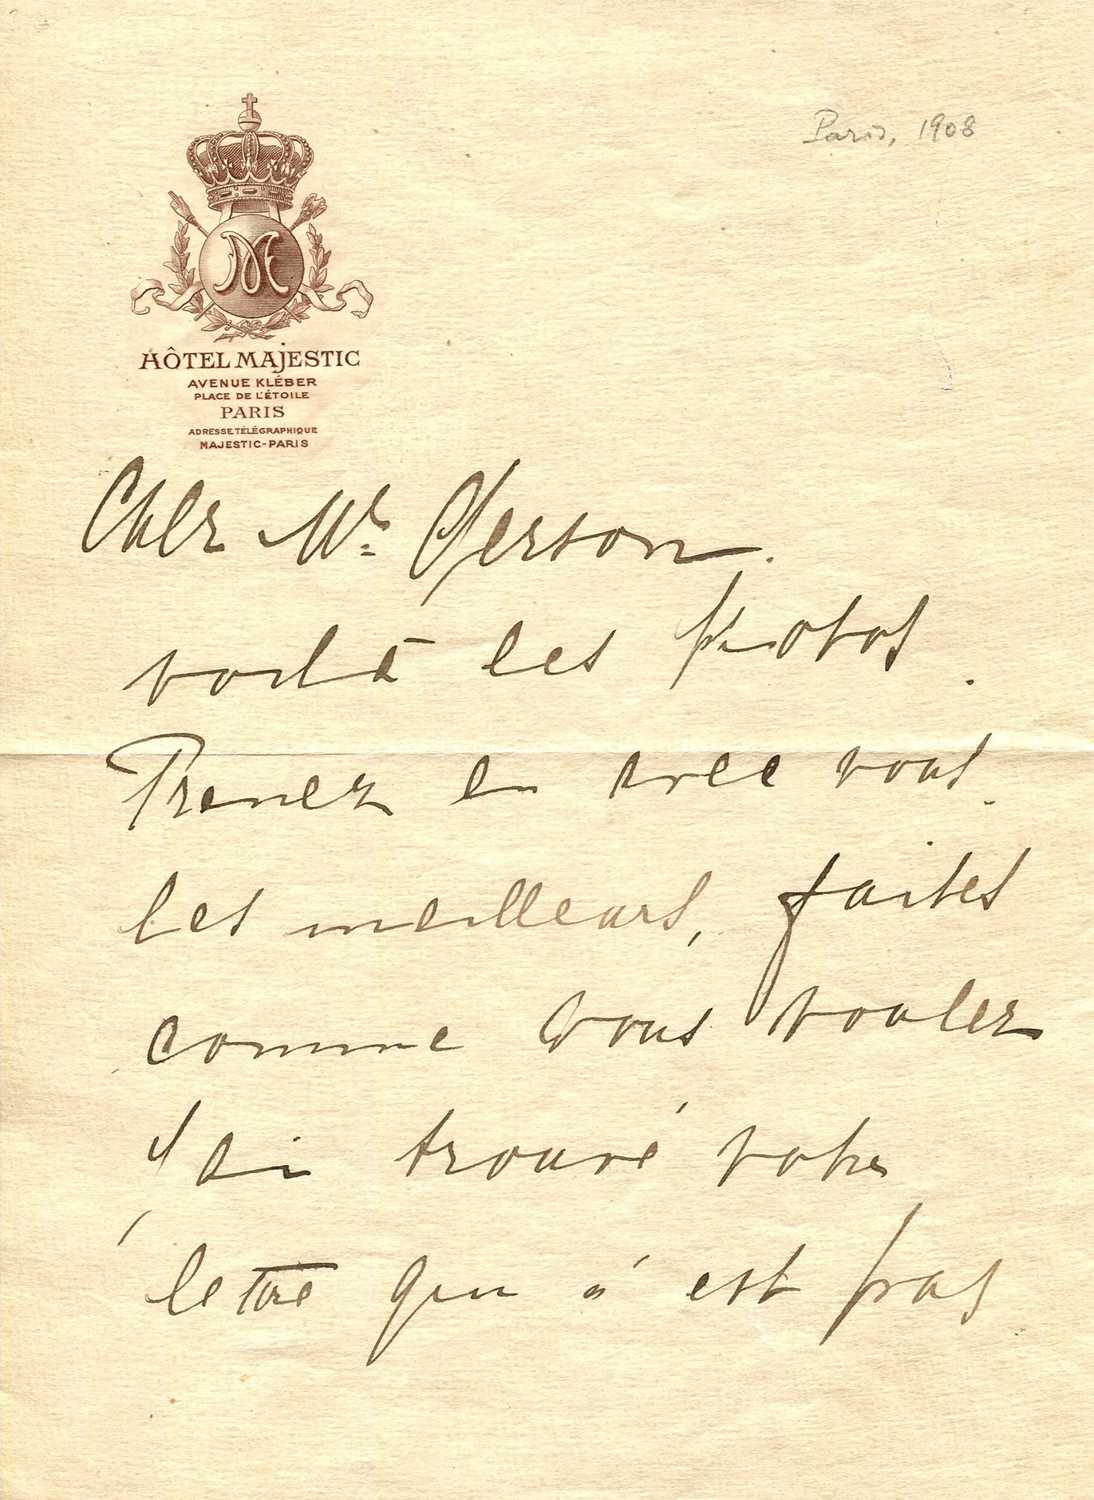 Paris, 1908
M
HÔTEL MAJESTIC
AVENUE KLÉBER
PLACE DE L'ÉTOILE
PARIS
ADRESSE TÉLÉGRAPHIQUE
MAJESTIC-PARIS
Cher Mr. Gerson.
voilà les photos.
Prenez en avec vous.
les meilleurs, faites
comme vous voulez
J'ai trouvé votre
lettre qui n'est pas